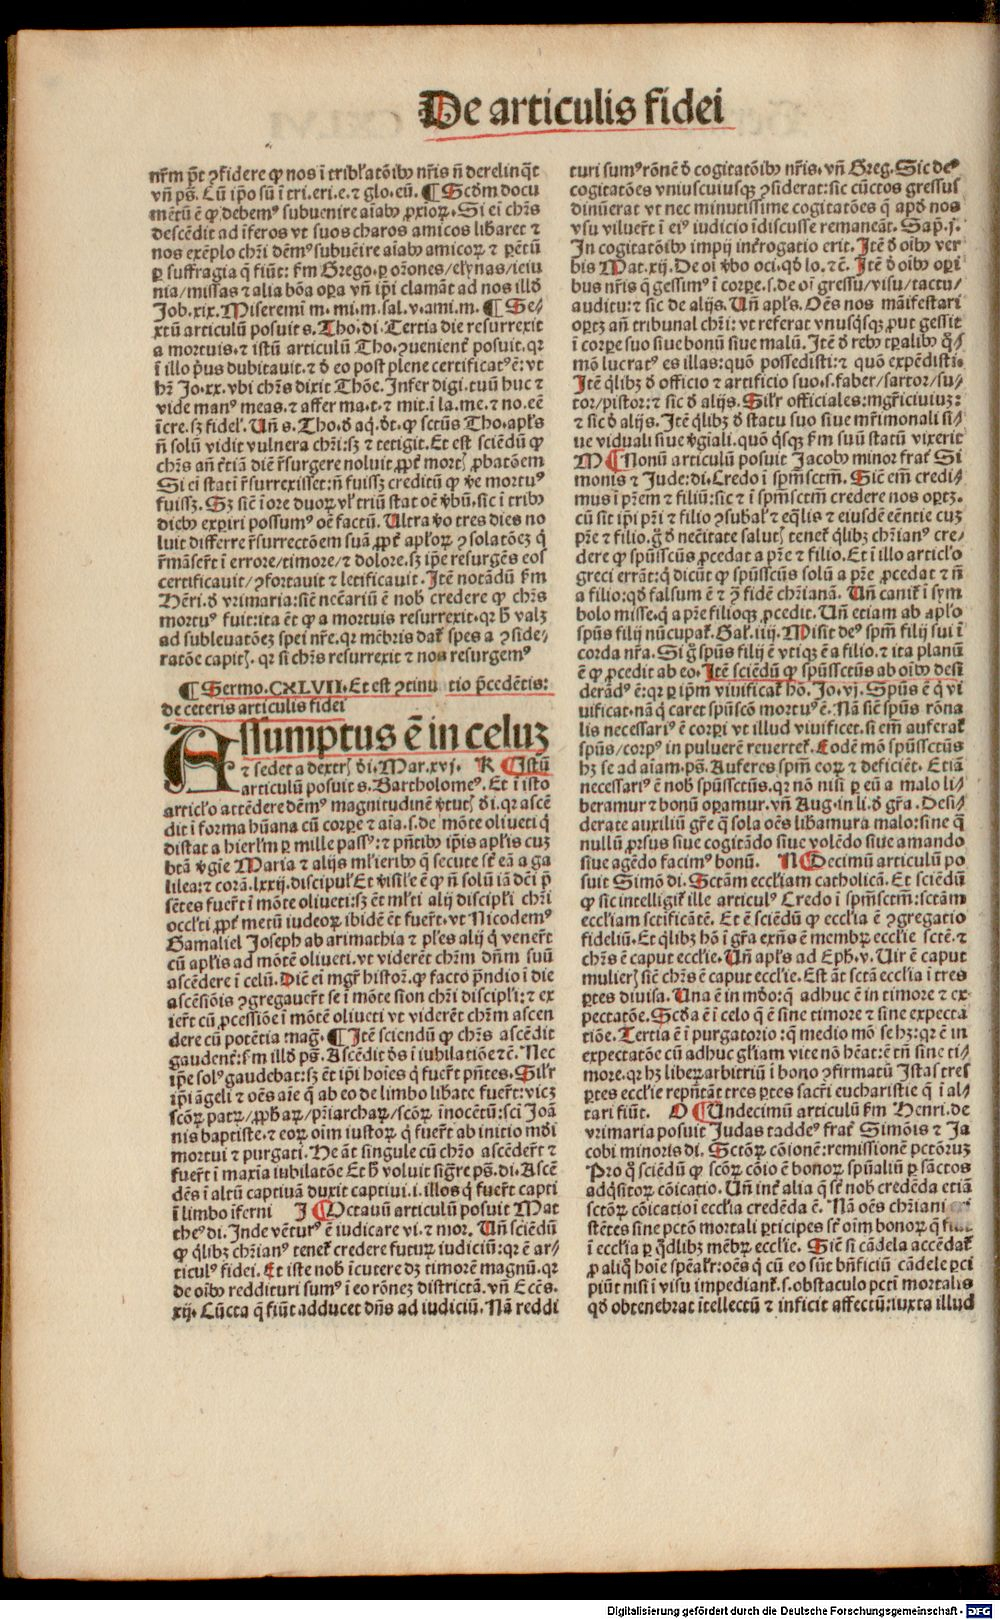 De articulis fidei
nr̄m p̄t ꝯfidere ꝙ nos ī tribl̓atōibꝰ nr̄is n̄ derelinq̄t
vn̄ ps̄. Cū ip̄o sū ī tri. eri. e. ⁊ glo. eū. ¶ Scd̓m docu
mētū ē ꝙ debemꝰ subuenire aīabꝰ ꝓxioꝝ. Si ei chr̄s
descēdit ad īferos vt suos charos amicos libaret ⁊
nos exēplo chr̄i dēmꝰ subuēire aīabꝰ amicoꝝ ⁊ p̄ctū
ꝑ suffragia q̄ fiūt: fm̄ Grego. ꝑ or̄ones/elynas/ieiu
nia/missas ⁊ alia bōa oꝑa vn̄ ip̄i clamāt ad nos illd̓
Job. xix. Miseremī m. mi. m. sal. v. ami. m. ¶ Se⸗
xtū articulū posuit s. Tho. di. Tertia die resurrexit
a mortuis. ⁊ istū articulū Tho. ꝯuenient̓ posuit. qr
ī illo pͥus dubitauit. ⁊ d̓ eo post plene certificatꝰ ē: vt
hr̄ Jo. xx. vbi chr̄s dixit Thōe. Infer digi. tuū huc ⁊
vide manꝰ meas. ⁊ affer ma. t. ⁊ mit. ī la. me. ⁊ no. eē
īcre. sꝫ fidel̓. Un̄ s. Tho. d̓ aq̄. d̓t. ꝙ sctūs Tho. apl̓s
n̄ solū vidit vulnera chr̄i: sꝫ ⁊ tetigit. Et est sciēdū ꝙ
chr̄s an̄ t̓tiā diē r̄surgere noluit ꝓpt̓ mort̓ ꝓbatōem
Si ei statī r̄surrexisset: n̄ fuissꝫ creditū ꝙ ve mortuꝰ
fuissꝫ. Sꝫ siē ī ore duoꝝ vl̓ triū stat oē v̓bū. sic ī tribꝰ
diebꝰ exꝑiri possumꝰ oē factū. Ultra v̓o tres dies no
luit differre r̄surrectōem suā ꝓpt̓ apl̓oꝝ ꝯsolatōeꝫ q̄
r̄māser̄t ī errore/timore/⁊ dolore. sꝫ ip̄e resurgēs eos
certificauit/ꝯfortauit ⁊ letificauit. Itē notādū fm̄
Hēri. d̓ vrimaria: siē nec̄ariū ē nob̓ credere ꝙ chr̄s
mortuꝰ fuit: ita ēt ꝙ a mortuis resurrexit. qr h̓ valꝫ
ad subleuatōeꝫ spei nr̄e. qr mēbris dat̓ spes a ꝯside⸗
ratōe capit̓. qr si chr̄s resurrexit ⁊ nos resurgemꝰ
¶ Sermo. CXLVII. Et est ꝯtinu tio p̄cedētis:
de ceteris articulis fidei
Assumptus ē in celuꝫ
⁊ sedet a dextr̓ d̓i. Mar. xvj. K ¶ Istū
articulū posuit s. Bartholomeꝰ. Et ī isto
articl̓o attēdere dēmꝰ magnitudinē v̓tut̓ d̓i. qr ascē
dit ī forma hūana cū corꝑe ⁊ aīa. s. de mōte oliueti q̄
distat a hierl̓m ꝑ mille passꝰ: ⁊ pn̄tibꝰ ip̄is apl̓is cuꝫ
btā v̓gie Maria ⁊ alijs ml̓ieribꝰ q̄ secute st̄ eā a ga
lilea: ⁊ corā. lxxij. discipul̓ Et visil̓e ē ꝙ n̄ solū iā dc̄i p̄
sētes fuer̄t ī mōte oliueti: sꝫ ēt ml̓ti alij discipl̓i chr̄i
occl̓ti ꝓpt̓ metū iudeoꝝ ibidē ēt fuer̄t. vt Nicodemꝰ
Gamaliel Joseph ab arimathia ⁊ pl̓es alij q̄ vener̄t
cū apl̓is ad mōtē oliueti. vt viderēt chr̄m dn̄m suū
ascēdere ī celū. Diē ei mgr̄ histor̄. ꝙ facto pn̄dio ī die
ascēsiōis ꝯgregauer̄t se ī mōte sion chr̄i discipl̓i: ⁊ ex
ier̄t cū ꝓcessiōe ī mōtē oliueti vt viderēt chr̄m ascen
dere cū potētia maḡ. ¶ Itē sciendū ꝙ chr̄s ascēdit
gaudent̓: fm̄ illd̓ ps̄. Ascēdit d̓s ī iubilatiōe ⁊ē. Nec
ip̄e solꝰ gaudebat: sꝫ ēt ip̄i hoīes q̄ fuer̄t pn̄tes. Sil̓r
ip̄i āgeli ⁊ oēs aīe q̄ ab eo de limbo libate fuer̄t: vicꝫ
sc̄oꝝ patꝝ/ꝓphaꝝ/pr̄iarchaꝝ/sc̄oꝝ īnocētū: sci Joā
nis baptiste. ⁊ eoꝝ oīm iustoꝝ q̄ fuer̄t ab initio mūdi
mortui ⁊ purgati. He āt singule cū chr̄o ascēder̄t ⁊
fuer̄t ī maxīa iubilatōe Et h̓ voluit sig̓re ps̄. di. Ascē
dēs ī altū captiuā duxit captiui. i. illos q̄ fuer̄t capti
ī limbo iferni J ¶ Octauū articulū posuit Mat
theꝰ di. Inde vētur̓ ē iudicare vi. ⁊ mor. Un̄ sciēdū
ꝙ q̄libꝫ chr̄ianꝰ tenet̓ credere futuꝝ iudiciū: qr ē ar⸗
ticulꝰ fidei. Et iste nob̓ īcutere dꝫ timorē magnū. qr
de oībꝰ reddituri sumꝰ ī eo rōneꝫ districtā. vn̄ Eccs̄.
xij. Cūcta q̄ fiūt adducet dn̄s ad iudiciū. Nā reddi
turi sumꝰ rōnē d̓ cogitatōibꝰ nr̄is. vn̄ Greg. Sic deꝰ
cogitatōes vniuscuiusqꝫ ꝯsiderat: sic cūctos gressus
dinūerat vt nec minutissime cogitatōes q̄ apd̓ nos
vsu viluer̄t ī eiꝰ iudicio īdiscusse remaneāt. Sap̄. j.
In cogitatōibꝰ impij īnt̓rogatio erit. Itē d̓ oībꝰ ver
bis Mat. xij. De oī v̓bo oci. qd̓ lo. ⁊c̄. Itē d̓ oībꝰ oꝑi
bus nr̄is q̄ gessimꝰ ī corꝑe. s. de oī gressu/visu/tactu/
auditu: ⁊ sic de alijs. Un̄ apl̓s. Oēs nos māifestari
oꝑtꝫ an̄ tribunal chr̄i: vt referat vnusqsqꝫ ꝓut gessit
ī corꝑe suo siue bonū siue malū. Itē d̓ rebꝰ tꝑalibꝰ q̄⸗
mō lucratꝰ es illas: quō possedisti: ⁊ quō expēdisti.
Itē q̄libꝫ d̓ officio ⁊ artificio suo. s. faber/sartor/su⸗
tor/pistor: ⁊ sic d̓ alijs. Sil̓r officiales: mgr̄i ciuiuꝫ:
⁊ sic d̓ alijs. Itē q̄libꝫ d̓ statu suo siue mr̄imonali si⸗
ue viduali siue v̓giali. quō q̄sqꝫ fm̄ suū statū vixerit
M ¶ Nonū articulū posuit Jacobꝰ minor frat̓ Si
monis ⁊ Jude: di. Credo ī spm̄sctm̄. Siē em̄ credi⸗
mus ī pr̄em ⁊ filiū: sic ⁊ ī spm̄sctm̄ credere nos oꝑtꝫ.
cū sit ip̄i pr̄i ⁊ filio ꝯsubal̓ ⁊ eq̄lis ⁊ eiusdē eēntie cuꝫ
pr̄e ⁊ filio. g̓ d̓ nec̄itate salut̓ tenet̓ q̄libꝫ chr̄ianꝰ cre⸗
dere ꝙ spūsscūs ꝓcedat a pr̄e ⁊ filio. Et ī illo articl̓o
greci errāt: q̄ dicūt ꝙ spūsscūs solū a pr̄e ꝓcedat ⁊ n̄
a filio: qd̓ falsum ē ⁊ ꝯ̄ fidē chr̄ianā. Un̄ canit̓ ī sym
bolo misse. q̄ a pr̄e filioqꝫ ꝓcedit. Un̄ etiam ab apl̓o
spūs filij nūcupat̓. Gal̓. iiij. Misit deꝰ spm̄ filij sui ī
corda nr̄a. Si g̓ spūs filij ē vtiqꝫ ē a filio. ⁊ ita planū
ē ꝙ ꝓcedit ab eo. Itē sciēdū ꝙ spūssctūs ab oībꝰ desi
derādꝰ ē: qr ꝑ ip̄m viuificat̓ hō. Jo. vj. Spūs ē q̄ vi
uificat. nā q̄ caret spūscō mortuꝰ ē. Nā siē spūs rōna
lis necessariꝰ ē corꝑi vt illud viuificet. si em̄ auferat̓
spūs/corpꝰ in puluerē reuertet̓. Eodē mō spūssctūs
hꝫ se ad aīam. ps̄. Auferes spm̄ eoꝝ ⁊ deficiēt. Etiā
necessariꝰ ē nob̓ spūssctūs. qr nō nisi ꝑ eū a malo li⸗
beramur ⁊ bonū oꝑamur. vn̄ Aug. in li. d̓ gr̄a. Desi⸗
derate auxiliū gr̄e q̄ sola oēs libamur a malo: sine q̄
nullū ꝓrsus siue cogitādo siue volēdo siue amando
siue agēdo facimꝰ bonū. N ¶ Decimū articulū po
suit Simō di. Sctām eccl̓iam catholicā. Et sciēdū
ꝙ sic intelligit̓ ille articulꝰ Credo ī spm̄sctm̄: sctām
eccl̓iam sctificātē. Et ē sciēdū ꝙ eccl̓ia ē ꝯgregatio
fideliū. Et q̄libꝫ hō ī gr̄a exn̄s ē membꝝ eccl̓ie sctē. ⁊
chr̄s ē caput eccl̓ie. Un̄ apl̓s ad Eph̓. v. Uir ē caput
mulier̓ siē chr̄s ē caput eccl̓ie. Est āt sctā eccl̓ia ī tres
ꝑtes diuisa. Una ē in mūdo: q̄ adhuc ē in timore ⁊ ex⸗
pectatōe. Scd̓a ē ī celo q̄ ē sine timore ⁊ sine expecta
tiōe. Tertia ē ī purgatorio: q̄ medio mō se hꝫ: qr ē in
expectatōe cū adhuc gl̓iam vite nō hēat: ē tn̄ sine ti⸗
more. qr hꝫ libeꝝ arbitriū ī bono ꝯfirmatū Istas tres
ꝑtes eccl̓ie repn̄tāt tres ꝑtes sacr̄i eucharistie q̄ ī al⸗
tari fiūt. O ¶ Undecimū articulū fm̄ Henri. de
vrimaria posuit Judas taddeꝰ frat̓ Simōis ⁊ Ja
cobi minoris di. Sctōꝝ cōionē: remissionē pctōꝝ
Pro q̄ sciēdū ꝙ sc̄oꝝ cōio ē bonoꝝ spūaliū ꝑ sāctos
adq̄sitoꝝ cōicatio. Un̄ int̓ alia q̄ st̄ nob̓ credēda etiā
sctōꝝ cōicatio ī eccl̓ia credēda ē. Nā oēs chr̄iani
stētes sine pctō mortali ꝑticipes st̄ oīm bonoꝝ q̄
ī eccl̓ia ꝑ q̄dlibꝫ mēbꝝ eccl̓ie. Siē si cādela accēdat̓
ꝓ aliq̄ hoīe speal̓r: oēs q̄ cū eo sūt bn̄ficiū cādele ꝑci
piūt nisi ī visu impediant̓. s. obstaculo pcti mortalis
qd̓ obtenebrat ītellectū ⁊ inficit affectū: iuxta illud
Digitalisierung gefördert durch die Deutsche Forschungsgemeinschaft - DFG